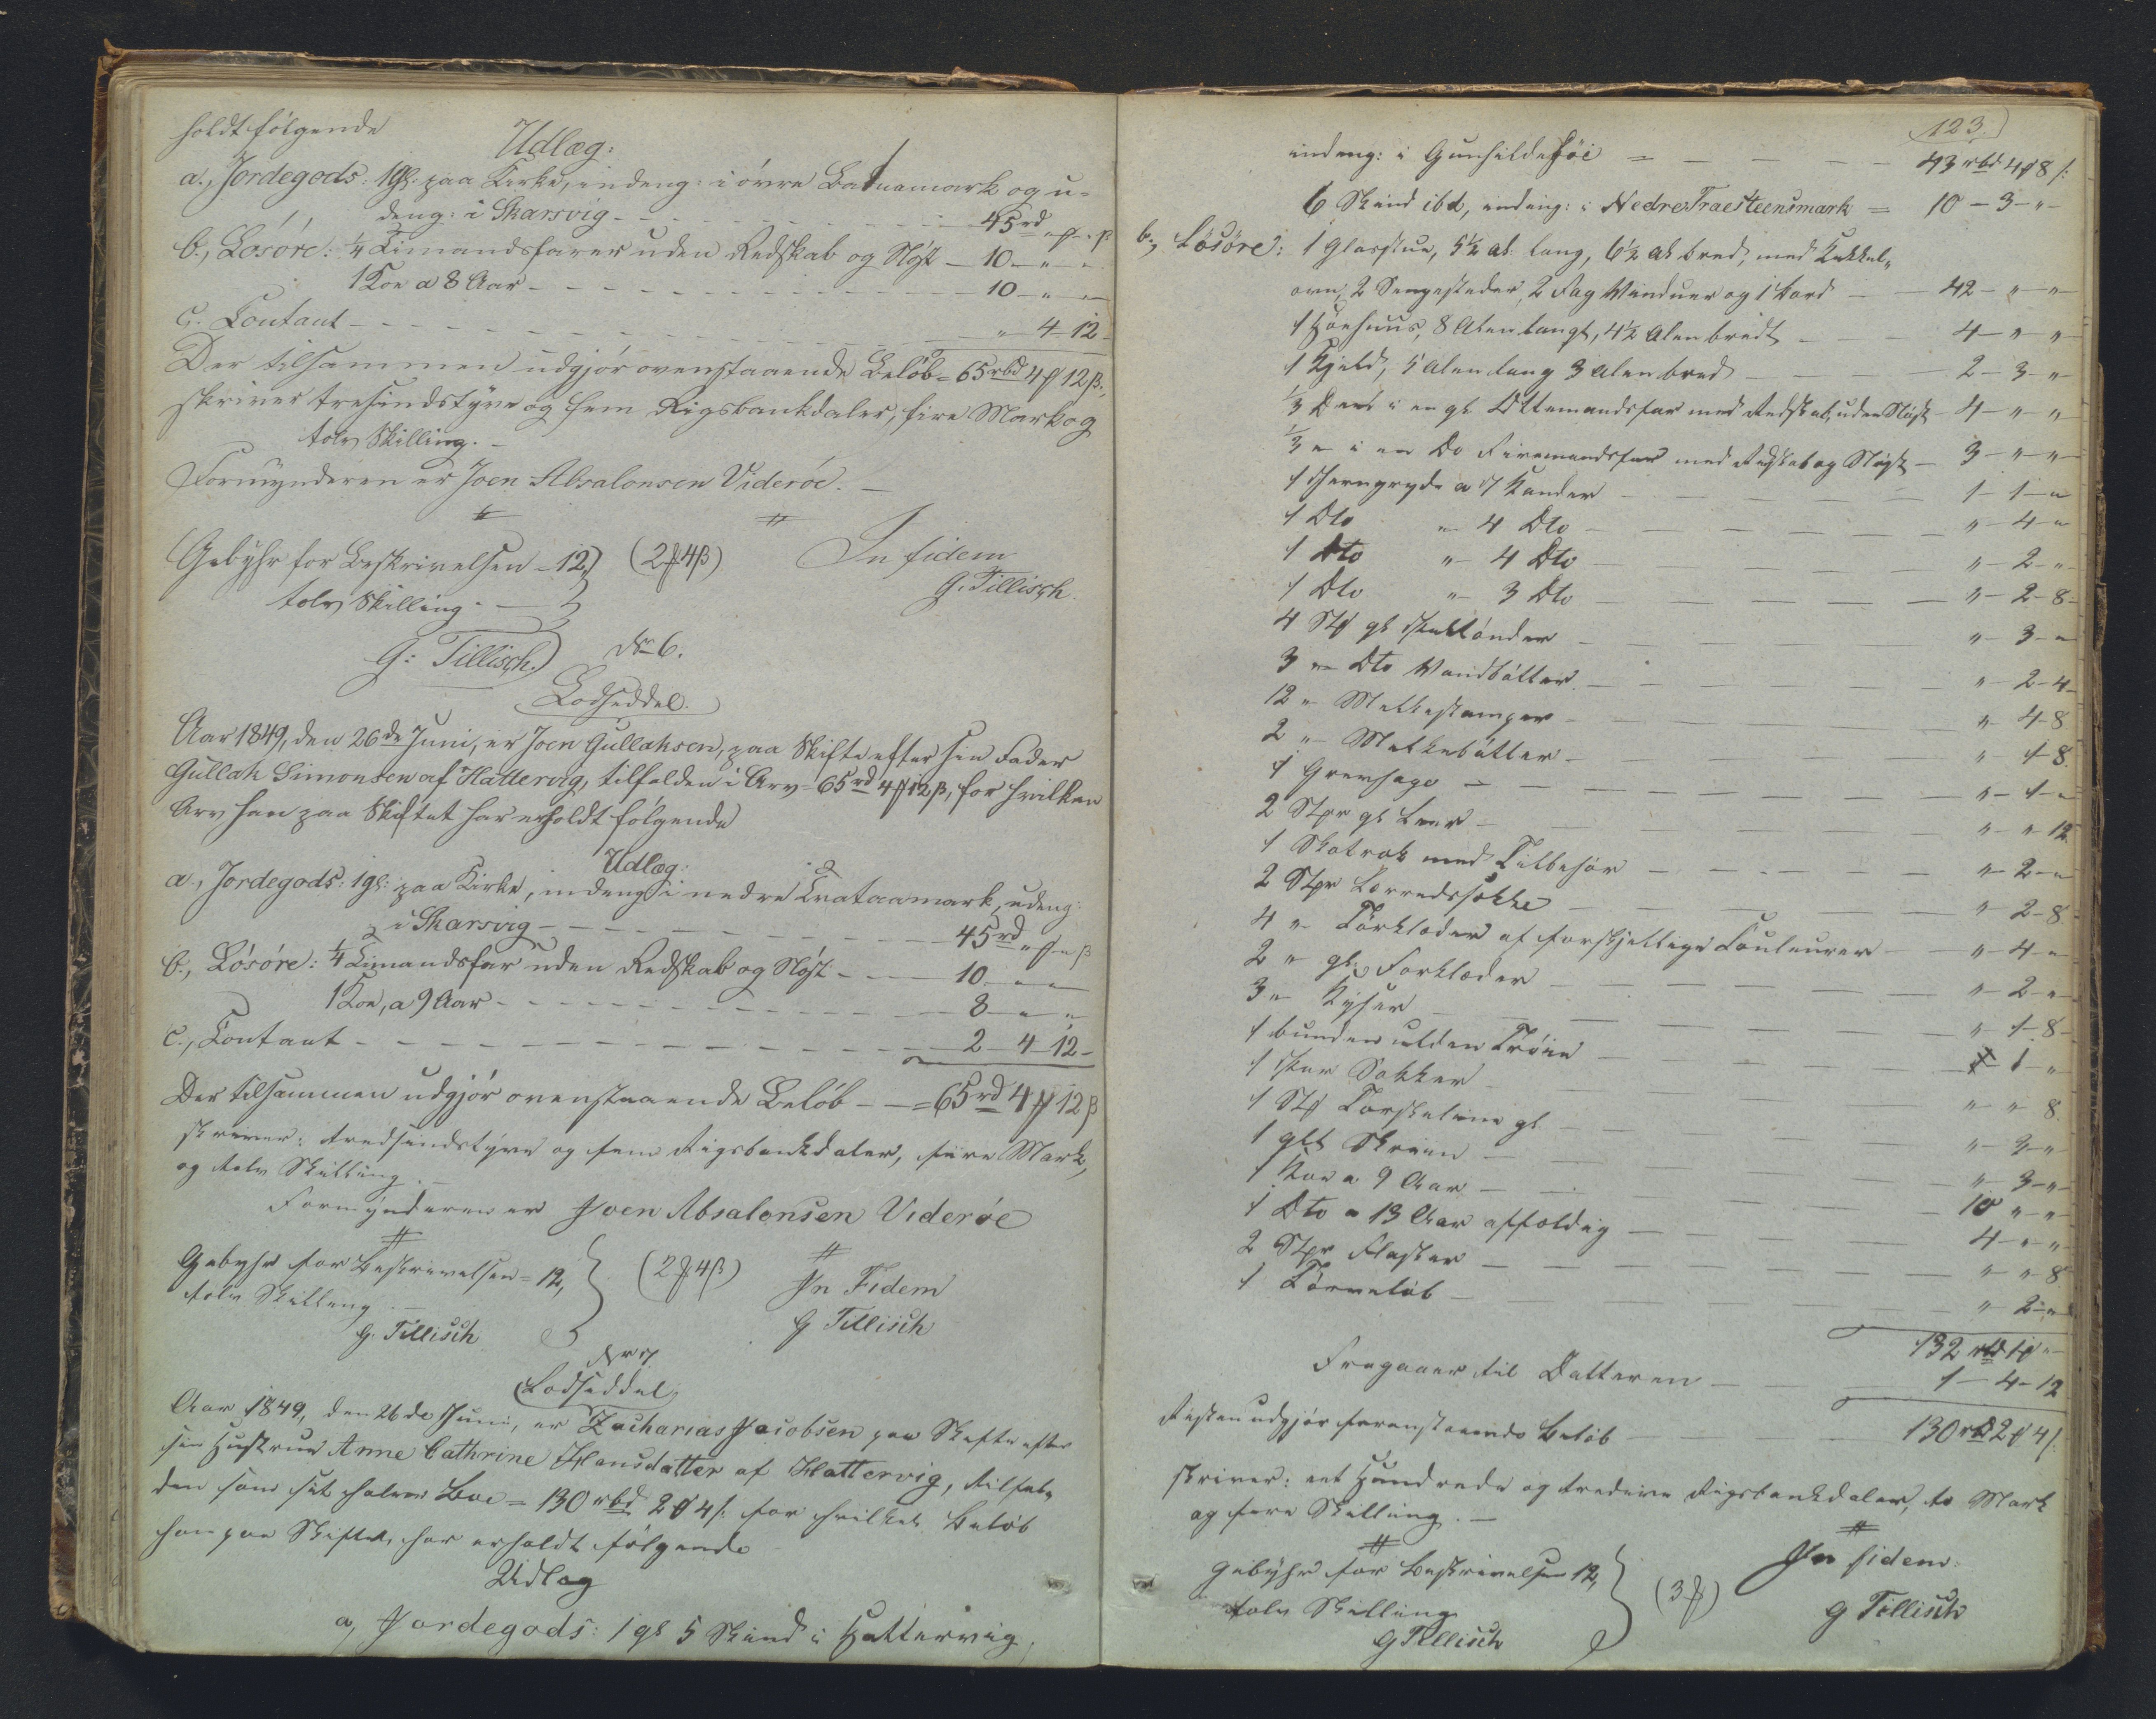 holdt følgende
Udlæg:
a., Jordegods: 1 gl: paa Kirke, indeng: i øvre Batnamark og u-
deng: i Skarsvig - - - 45 rd „ ℔ „ β
b., Løsøre: 1/4 Timandsfarer uden Redskab og Nøst - 10 - „ - „
1 Koe a 8 Aar - - - 10 - „ - „
c. Contant - - - „ - 4 - 12 -
Der tilsammen udgjør ovenstaaende Beløb = 65 rbd 4 ℔ 12 β.
skriver tresindstyve og fem Rigsbankdaler, fire Mark og
tolv Skilling. -
Formynderen er Joen Absalonsen Viderøe. -
Gebyhr for Beskrivelsen - 12,
(2 ℔ 4 β)
In fidem
tolv Skilling. -
G. Tillisch.
G: Tillisch.
No 6.
Lodseddel.
Aar 1849, den 26de Juni, er Joen Gullaksen, paa Skifte efter sin Fader
Gullak Simonsen af Hattervig, tilfalden i Arv = 65 rd 4 ℔ 12 β, for hvilken
Arv han paa Skiftet har erholdt følgende
Udlæg:
a., Jordegods: 1 gl: paa Kirke, indeng: i nedre Trataamark, udeng:
i Skarsvig - - - 45 rd „ ℔ „ β
b., Løsøre: 1/4 Timandsfar uden Redskab og Nøst - - 10 - „ - „
1 Koe, a 9 Aar - - - 8 - „ - „
c., Contant - - - 2 - 4 - 12 -
Der tilsammen udgjør ovenstaaende Beløb - - = 65 rd 4 ℔ 12 β
skriver: tredsindstyve og fem Rigsbankdaler, fiire Mark,
og tolv Skilling. -
Formynderen er Joen Absalonsen Viderøe
Gebyhr for Beskrivelsen = 12,
(2 ℔ 4 β)
In Fidem
tolv Skilling. -
G. Tillisch
G Tillisch
No 7.
Lodseddel,
Aar 1849, den 26de Juni, er Zacharias Jacobsen paa Skifte efter
sin Hustrue Anne Cathrine Hansdatter af Hattervig, tilfal-
den som sit halve Boe = 130 rbd 2 ℔ 4 /: for hvilket Beløb
han paa Skiftet, har erholdt følgende
Udlæg
a, Jordegods: 1 gl 5 Skind i Hattervig,
123.
indeng: i Gunhildehøi = - - 43 rbd 4 ℔ 8 /:
6 Skind ibd, indeng: i Nedre Traesteensmark = 10 - 3 - „ -
b., Løsøre: 1 Glasstue, 5½ al. lang, 6½ al bred, med Kakkel-
ovn, 2 Sengesteder, 2 Fag Vinduer og 1 Bord - 42 - „ - „
1 Høehuus, 8 Alen langt, 4½ Alen bredt - - 4 - „ - „
1 Hjeld, 5 Alen lang 3 Alen bred - - 2 - 3 - „
1/3 Deel i en gl. Ottemandsfar med Redskab, uden Nøst - 4 - „ - „
1/3 „ i en Do Firemandsfar med Redskab og Nøst - 3 - „ - „
1 Jerngryde a 7 Kander - - 1 - 1 - „
1 Dto „ 4 Dto - - „ - 4 - „
1 Dto „ 4 Dto - - „ - 2 - „
1 Dto „ 3 Dto - - „ - 2 - 8 -
4 Stk gl - - „ - 3 - „
3 „ Dto Vandbøtter - - „ - 2 - 4 -
12 „ Melkestamper - - „ - 4 - 8
2 „ Melkebøtter - - „ - 1 - 8.
1 - - „ - 1 - „
2 Stkr gl - - „ - „ 12
1 Skotrok med Tilbehør - - „ - 2 - „
2 Stkr Lærredssække - - „ - 2 - 8
4 „ Tørklæder af forskjellige Couleurer - - „ - 4 - „
2 „ gl. Forklæder - - „ - 2 - „
3 „ Kyser - - „ - 1 - 8 -
1 bunden ulden Trøie - - 1 - „
1 Par Sokker - - „ - „ 8.
1 Stk Torskeline gl - - „ - 2 - „
1 glt Skriin - - „ - 3 - „
1 Koe a 9 Aar - - 10 „ - „
1 Dto a 13 Aar affældig - - 4 - „ - „
2 Stkr Flasker - - „ - „ 8
1 Tørveløb - - „ - 2 - „
132 rbd 1 ℔ „
Fragaaer til Datteren - - 1 - 4 - 12
Resten udgjør foranstaaende Beløb - - 130 rbd 2 ℔ 4 /:
skriver: eet Hundrede og tredive Rigsbankdaler, to Mark
og fire Skilling. -
Gebyhr for Beskrivelsen 12,
(3 ℔)
In fidem
tolv Skilling
G Tillisch
G Tillisch